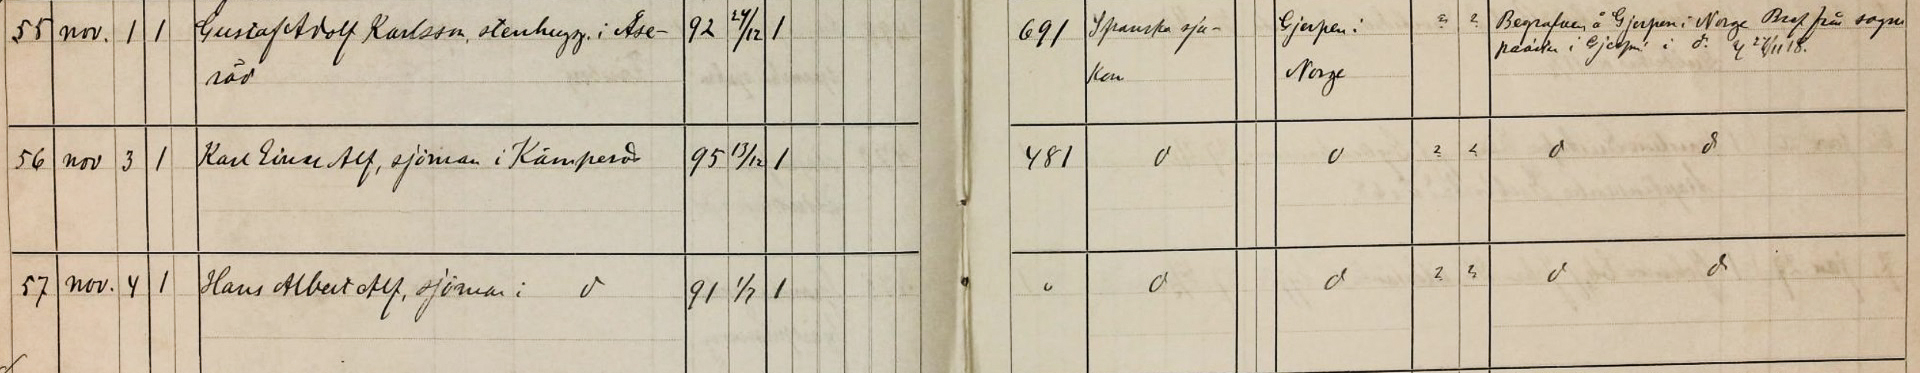 55 nov. 1 1 Gustaf Adolf Karlsson, stenhugg. i Åse- 92 24/12 1 691 Spanska sju- Gjerpen i ? ? Begrafven å Gjerpen i Norge Bref från sogne
röd kan Norge i Gjerpen i d:
56 nov 3 1 Karl Einar Alf, sjöman i Kämperöd 95 13/12 1 481 d d ? ? d d
57 nov. 4 1 Hans Albert Alf, sjöman i d 91 1/7 1 " d d ? ? d d